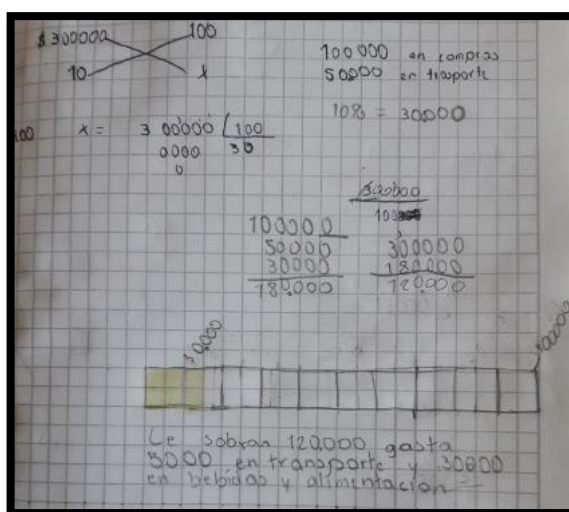 $ 300000 100
10 x
100000 en compras
50000 en trasporte
10% = 30000
100 x = 300000 100
0000 30
0
300000
100
100000
50000
30000
180.000
300000
180000
120.000
30000
Le sobran 120.000 gasta
5000 en transporte y 30000
en bebidas y alimentacion